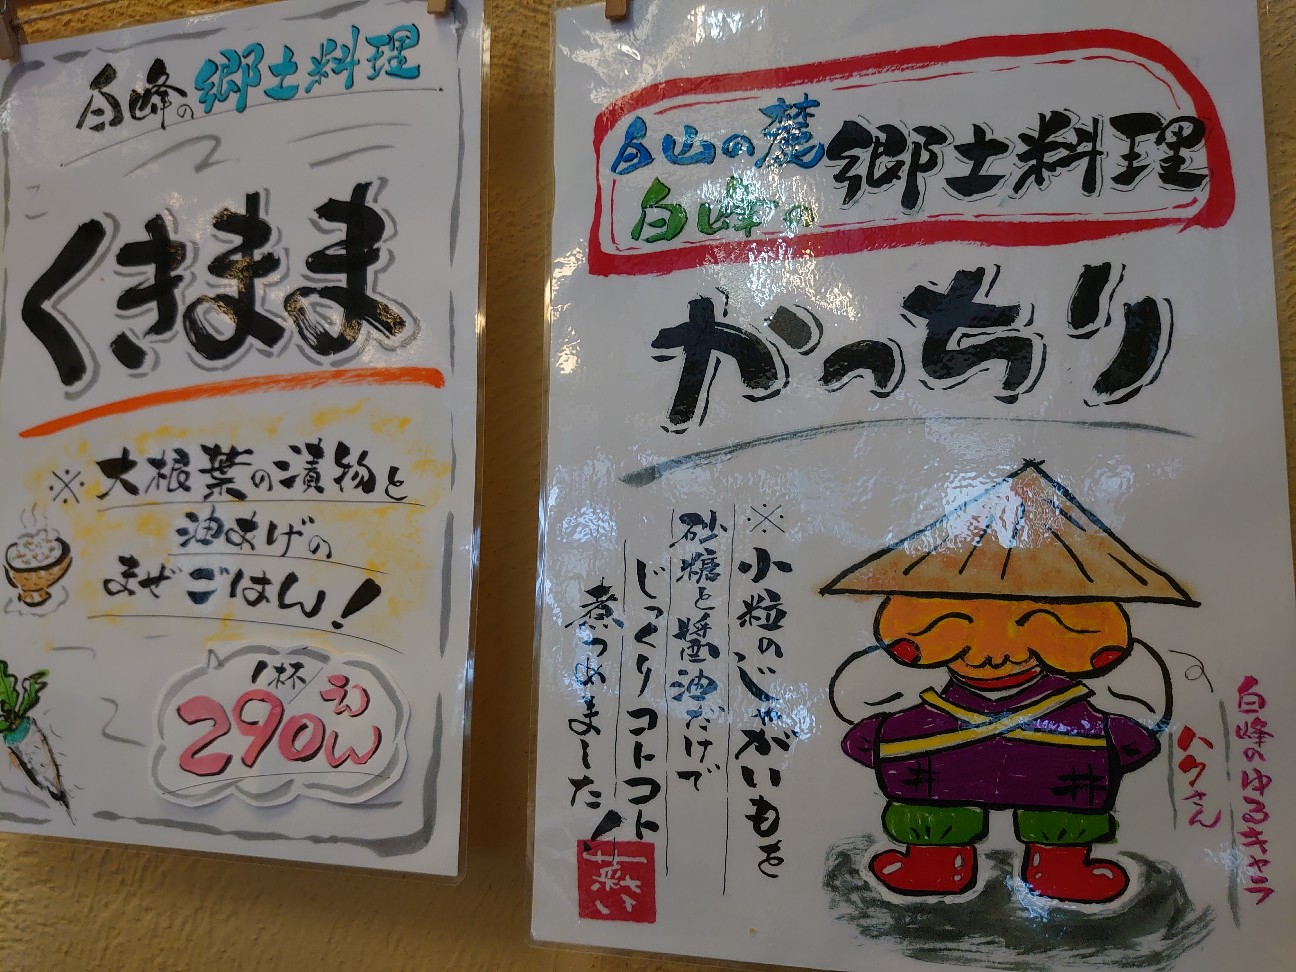 白峰の郷土料理
くきまま
※大根葉の漬物と
油あげの
まぜごはん!
1杯
290えん
白山の麓
白峰の
郷土料理
かっちり
※小粒のじゃがいもを
砂糖と醤油だけで
じっくりコトコト
煮つめました!
白峰のゆるキャラ
ハクさん